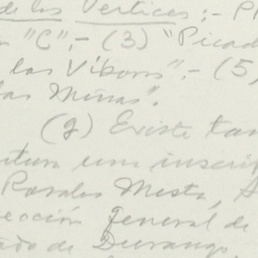 de los Vertices:- P
"C".- (3) "Picad
las Víboras".- (5,
las Minas".
(2) Existe tam
un inscrip
Rosales Mesta, A
ección general de
ado de Durango